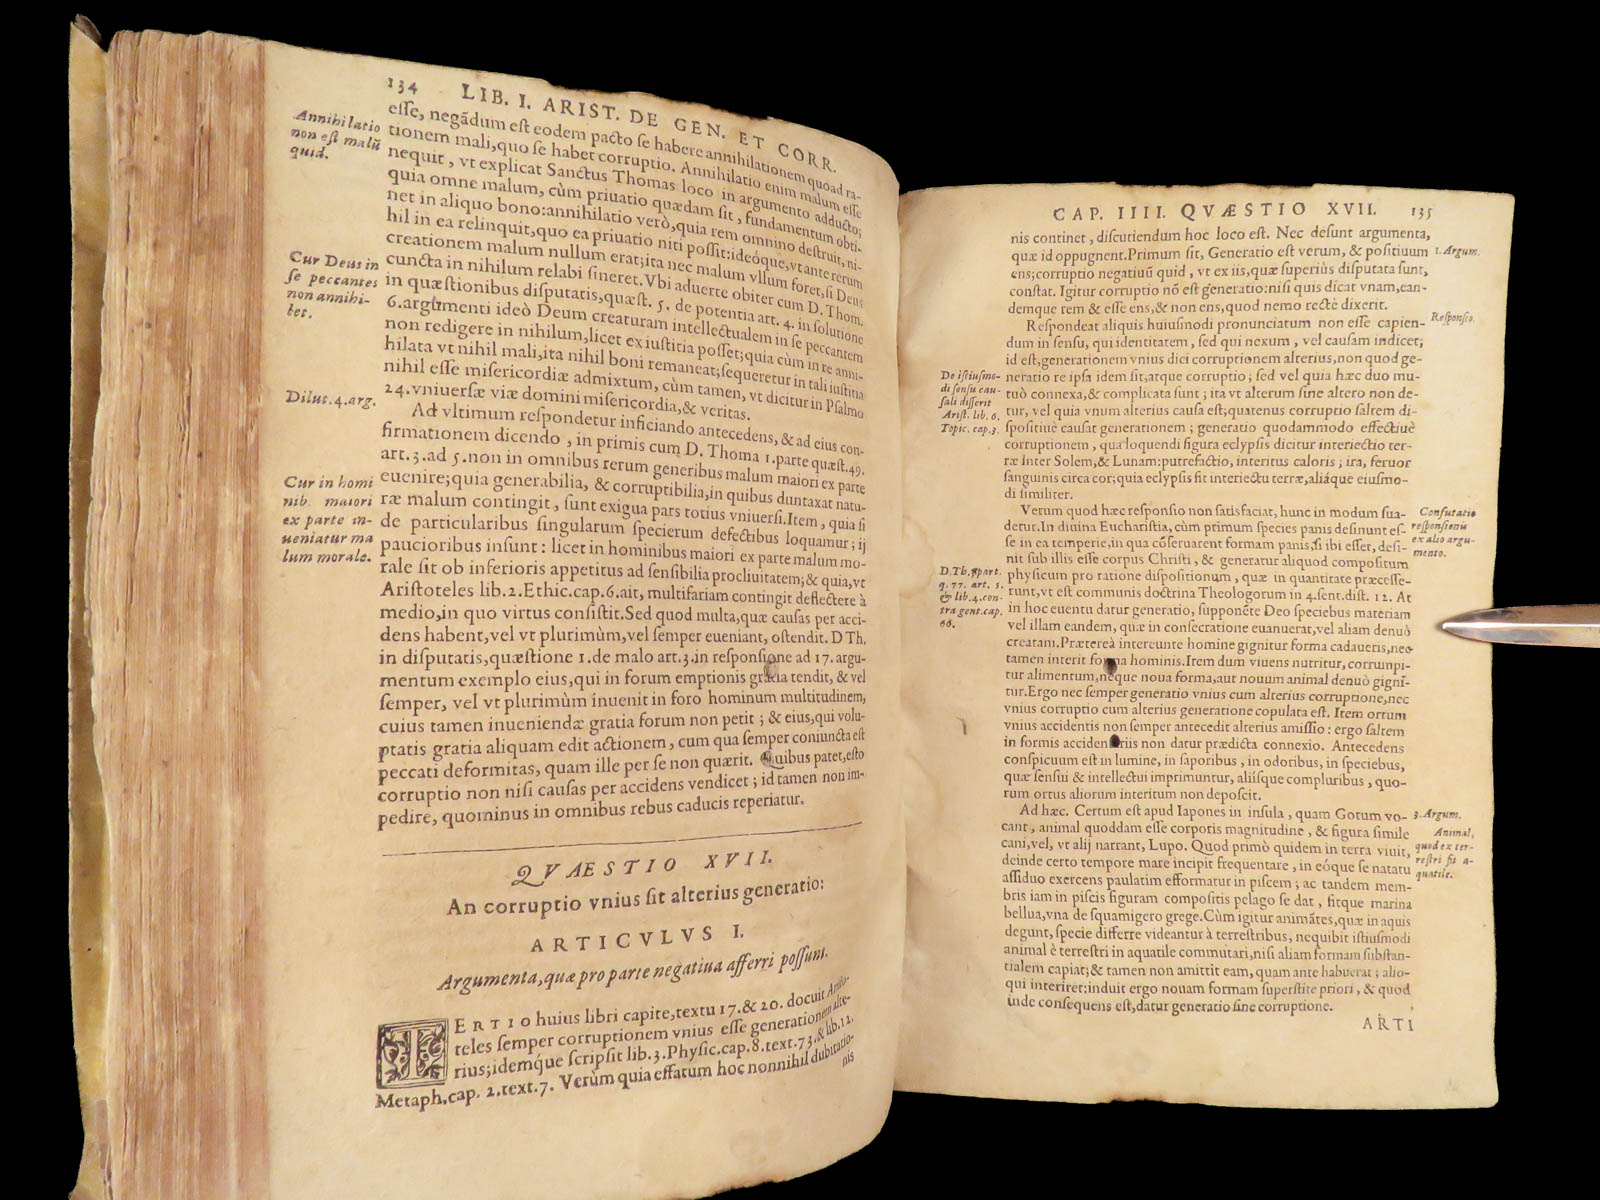 134 LIB. I. ARIST. DE GEN. ET CORR.
Annihilatio
non est malũ
quid.
esse, negãdum est eodem pacto se habere annihilationem quoad ra-
tionem mali, quo se habet corruptio. Annihilatio enim malum esse
nequit, vt explicat Sanctus Thomas loco in argumento adducto;
quia omne malum, cùm priuatio quædam sit, fundamentum obti-
net in aliquo bono: annihilatio verò, quia rem omnino destruit, ni-
hil in ea relinquit, quo ea priuatio niti possit: ideóque, vt ante rerum
creationem malum nullum erat; ita nec malum vllum foret, si Deus
cuncta in nihilum relabi sineret. Vbi aduerte obiter cum D. Thom.
Cur Deus in
se peccantes
non annihi-
let.
in quæstionibus disputatis, quæst. 5. de potentia art. 4. in solutione
6. argumenti ideò Deum creaturam intellectualem in se peccantem
non redigere in nihilum, licet ex iustitia posset; quia cùm in re anni-
hilata vt nihil mali, ita nihil boni remaneat; sequeretur in tali iustitia
nihil esse misericordiæ admixtum, cùm tamen, vt dicitur in Psalmo
24. vniuersæ viæ domini misericordia, & veritas.
Dilut. 4. arg.
Ad vltimum respondetur inficiando antecedens, & ad eius con-
firmationem dicendo, in primis cum D. Thoma 1. parte quæst. 49.
art. 3. ad 5. non in omnibus rerum generibus malum maiori ex parte
Cur in homi
nib. maiori
ex parte in-
ueniatur ma
lum morale.
euenire; quia generabilia, & corruptibilia, in quibus duntaxat natu-
ræ malum contingit, sunt exigua pars totius vniuersi. Item, quia si
de particularibus singularum specierum defectibus loquamur; ij
paucioribus insunt: licet in hominibus maiori ex parte malum mo-
rale sit ob inferioris appetitus ad sensibilia procliuitatem; & quia, vt
Aristoteles lib. 2. Ethic. cap. 6. ait, multifariam contingit deflectere à
medio, in quo virtus consistit. Sed quod multa, quæ causas per acci-
dens habent, vel vt plurimùm, vel semper eueniant, ostendit. D Th.
in disputatis, quæstione 1. de malo art. 3. in responsione ad 17. argu-
mentum exemplo eius, qui in forum emptionis gratia tendit, & vel
semper, vel vt plurimùm inuenit in foro hominum multitudinem,
cuius tamen inueniendæ gratia forum non petit; & eius, qui volu-
ptatis gratia aliquam edit actionem, cum qua semper coniuncta est
peccati deformitas, quam ille per se non quærit. Quibus patet, esto
corruptio non nisi causas per accidens vendicet; id tamen non im-
pedire, quominus in omnibus rebus caducis reperiatur.
QVAESTIO XVII.
An corruptio vnius sit alterius generatio:
ARTICVLVS I.
Argumenta, quæ pro parte negatiua afferri possunt.
TERTIO huius libri capite, textu 17. & 20. docuit Aristo-
teles semper corruptionem vnius esse generationem alte-
rius; idemq́ue scripsit lib. 3. Physic. cap. 8. text. 73. & lib. 12.
Metaph. cap. 2. text. 7. Verùm quia effatum hoc nonnihil dubitatio-
nis
CAP. IIII. QVÆSTIO XVII. 135
nis continet, discutiendum hoc loco est. Nec desunt argumenta,
quæ id oppugnent. Primum sit, Generatio est verum, & positiuum
1. Argum.
ens; corruptio negatiuũ quid, vt ex iis, quæ superiùs disputata sunt,
constat. Igitur corruptio nõ est generatio: nisi quis dicat vnam, ean-
demque rem & esse ens, & non ens, quod nemo rectè dixerit.
Respondeat aliquis huiusmodi pronunciatum non esse capien-
Responsio.
dum in sensu, qui identitatem, sed qui nexum, vel causam indicet;
id est; generationem vnius dici corruptionem alterius, non quod ge-
De istiusmo-
di sensu cau-
sali disserit
Arist. lib. 6.
Topic. cap. 3.
neratio re ipsa idem sit, atque corruptio; sed vel quia hæc duo mu-
tuò connexa, & complicata sunt; ita vt alterum sine altero non de-
tur, vel quia vnum alterius causa est; quatenus corruptio saltem di-
spositiuè causat generationem; generatio quodammodo effectiuè
corruptionem, qua loquendi figura eclypsis dicitur interiectio ter-
ræ inter Solem, & Lunam: putrefactio, interitus caloris; ira, feruor
sanguinis circa cor; quia eclypsis fit interiectu terræ, aliáque eiusmo-
di similiter.
Verum quod hæc responsio non satisfaciat, hunc in modum sua-
Confutatio
responsionis
ex alio argu-
mento.
detur. In diuina Eucharistia, cùm primum species panis desinunt es-
se in ea temperie, in qua cõseruarent formam panis, si ibi esset, desi-
nit sub illis esse corpus Christi, & generatur aliquod compositum
D. Th. 3. part.
q. 77. art. 5.
& lib. 4. con-
tra gent. cap.
66.
physicum pro ratione dispositionum, quæ in quantitate præcesse-
runt, vt est communis doctrina Theologorum in 4. sent. dist. 12. At
in hoc euentu datur generatio, supponẽte Deo speciebus materiam
vel illam eandem, quæ in consecratione euanuerat, vel aliam denuò
creatam. Prætereà intereunte homine gignitur forma cadaueris, nec
tamen interit forma hominis. Item dum viuens nutritur, corrumpi-
tur alimentum, neque noua forma, aut nouum animal denuò gigni-
tur. Ergo nec semper generatio vnius cum alterius corruptione, nec
vnius corruptio cum alterius generatione copulata est. Item ortum
vnius accidentis non semper antecedit alterius amissio: ergo saltem
in formis accidentariis non datur prædicta connexio. Antecedens
conspicuum est in lumine, in saporibus, in odoribus, in speciebus,
quæ sensui & intellectui imprimuntur, aliisque compluribus, quo-
rum ortus aliorum interitum non deposcit.
Ad hæc. Certum est apud Iapones in insula, quam Gotum vo-
3. Argum.
Animal,
quod ex ter-
restri fit a-
quatile.
cant, animal quoddam esse corporis magnitudine, & figura simile
cani, vel, vt alij narrant, Lupo. Quod primò quidem in terra viuit,
deinde certo tempore mare incipit frequentare, in eóque se natatu
assiduo exercens paulatim efformatur in piscem; ac tandem mem-
bris iam in piscis figuram compositis pelago se dat, fitque marina
bellua, vna de squamigero grege. Cùm igitur animãtes, quæ in aquis
degunt, specie differre videantur à terrestribus, nequibit istiusmodi
animal è terrestri in aquatile commutari, nisi aliam formam substan-
tialem capiat; & tamen non amittit eam, quam ante habuerat; alio-
qui interiret: induit ergo nouam formam superstite priori, & quod
inde consequens est, datur generatio sine corruptione.
ARTI